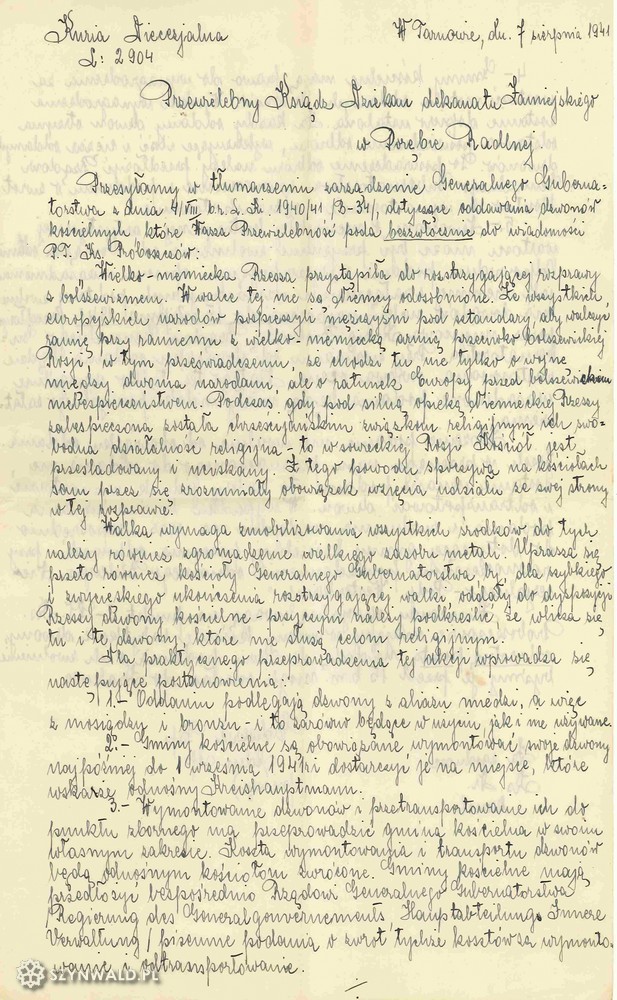 Kuria Diecezjalna W Tarnowie, dn. 7 sierpnia 1941
L: 2904
Przewielebny Ksiądz Dziekan dekanatu
w Porębie Radlnej.
Przesyłamy w tłumaczeniu zarządzenie Generalnego Guberna-
torstwa z dnia 4/VIII br. 1940/41 /B-34/, dotyczące oddawania dzwonów
kościelnych które Wasza Przewielebność poda bezzwłocznie do wiadomości
P.T. Ks. Proboszczów:
"Wielko-niemiecka Rzesza przystąpiła do rozstrzygającej rozprawy
z bolszewizmem. W walce tej nie są Niemcy odosobnione. Ze wszystkich
europejskich narodów pospieszyli mężczyźni pod sztandary, aby walczyć
ramię przy ramieniu z wielko-niemiecką armią przeciwko bolszewickiej
Rosji, w tym przeświadczeniu, że chodzi tu nie tylko o wojnę
między dwoma narodami, ale o ratunek Europy przed bolszewickiem
niebezpieczeństwem. Podczas gdy pod silną opieką Niemieckiej Rzeszy
zabezpieczona została chrześcijańskim związkom religijnym ich swo-
bodna działalność religijna - to w sowieckiej Rosji Kościół jest
prześladowany i uciskany. Z tego powodu spoczywa na kościołach
sam przez się zrozumiały obowiązek wzięcia udziału ze swej strony
w tej rozprawie.
Walka wymaga zmobilizowania wszystkich środków do tych
należy również zgromadzenie wielkiego zasobu metali. Uprasza się
przeto również kościoły Generalnego Gubernatorstwa by, dla szybkiego
i zwycięskiego ukończenia rozstrzygającej walki, oddały do dyspozycji
Rzeszy dzwony kościelne - przyczym należy podkreślić, że wlicza się
tu i te dzwony, które nie służą celom religijnym.
Dla praktycznego przeprowadzenia tej akcji wprowadza się
następujące postanowienia:
1.- Oddaniu podlegają dzwony z aliażu miedzi, a więc
z mosiądzu i bronzu - i to zarówno będące w użyciu, jak i nie używane.
2.- Gminy kościelne są obowiązane wymontować swoje dzwony
najpóźniej do 1 września 1941 r i dostarczyć je na miejsce, które
wskaże odnośny Kreishauptmann.
3.- Wymontowanie dzwonów i przetransportowanie ich do
punktu zbornego ma przeprowadzić gmina kościelna w swoim
własnym zakresie. Koszta wymontowania i transportu dzwonów
będą odnośnym kościołom zwrócone. Gminy kościelne mają
przedłożyć bezpośrednio Rządowi Generalnego Gubernatorstwa
/Regierung des Generalgouvernements, Hauptabteilung Innere
Verwaltung/ pisemne podania o zwrot tychże kosztów za wymonto-
wanie i odtransportowanie.
./.
SZYNWALD.PL